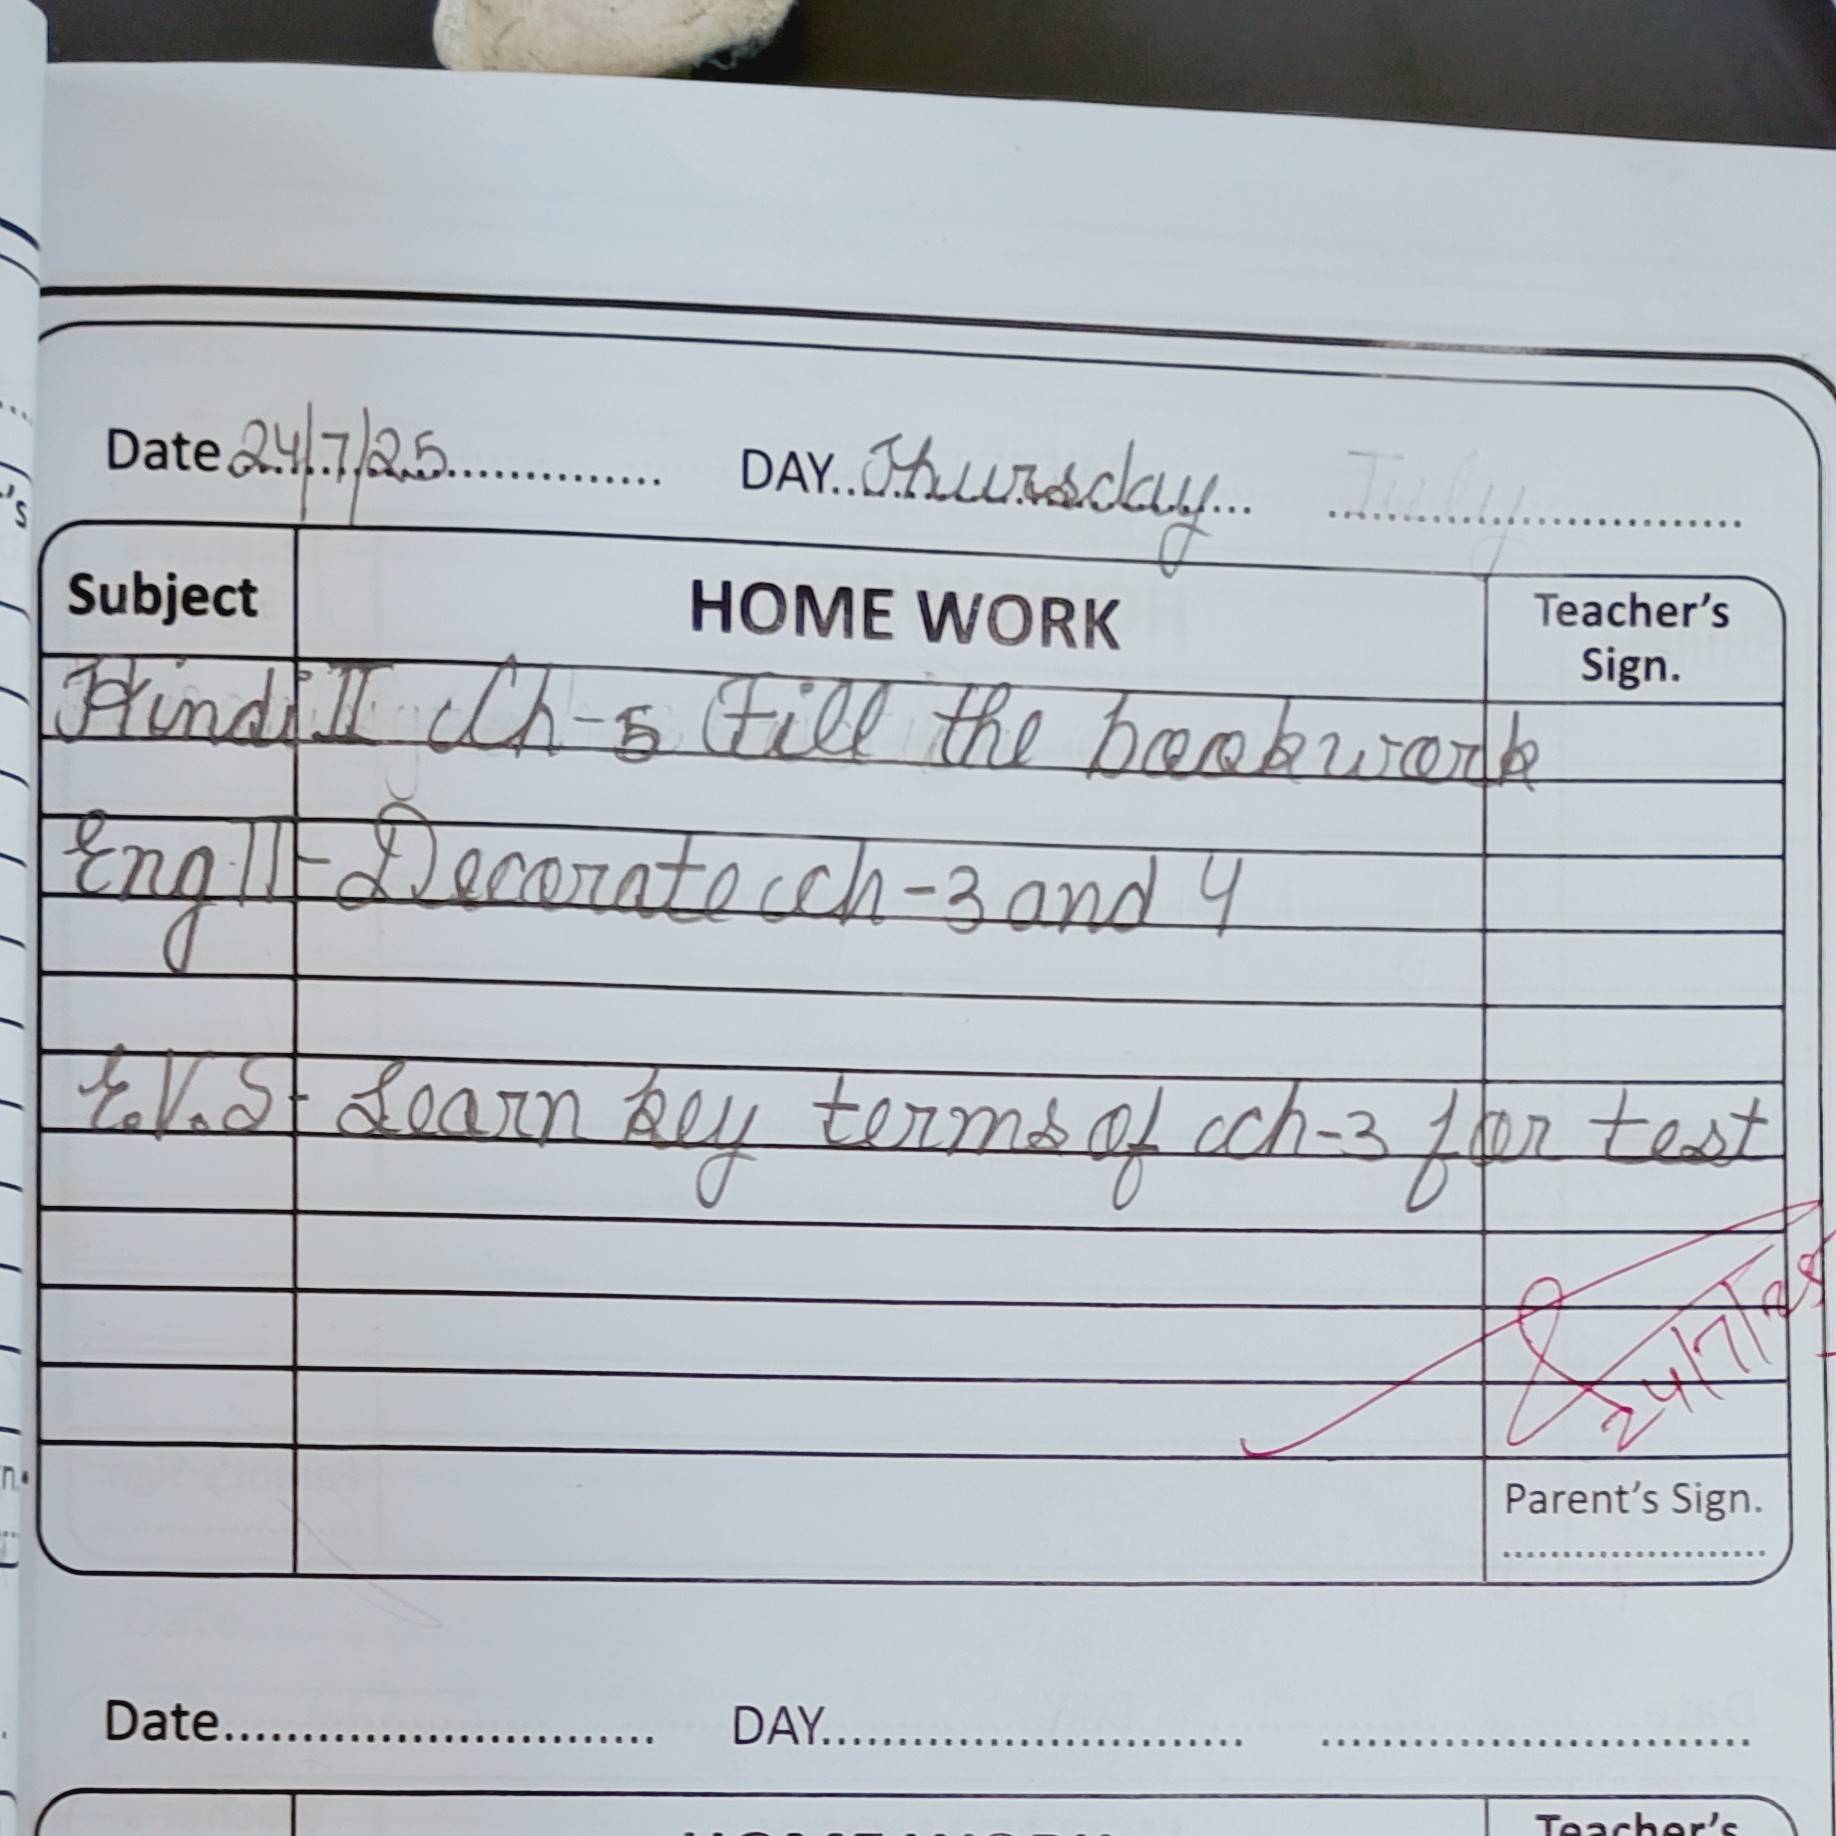 Date 24/7/25 DAY Thursday July
Subject HOME WORK Teacher's Sign.
Hindi II Ch-5 Fill the bookwork
Eng II - Decorate ch-3 and 4
E.V.S - Learn key terms of ch-3 for test
24/7/25
Parent's Sign.
Date DAY
HOME WORK Teacher's